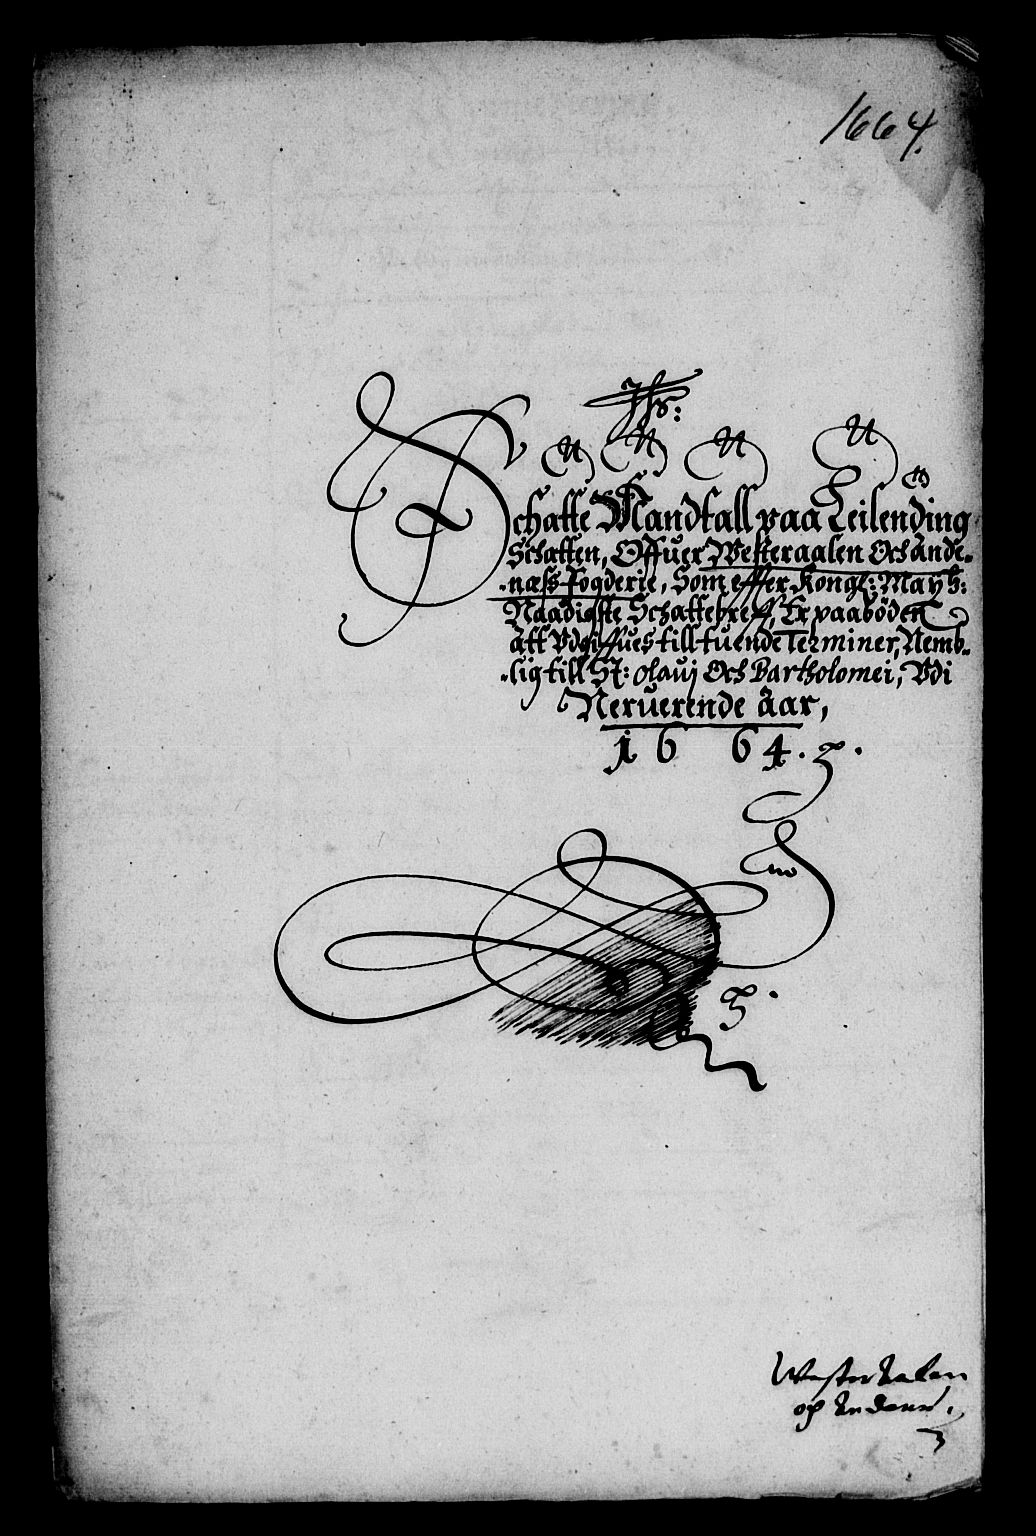 1664.
Jhs:
Schatte Mandtall paa Leilending
Schatten, Offuer Westeraalen Och Ande-
-næss Fogderie, Som effter Kongl: Mayts:
Naadigste Schattebreff, Er paaböden
att Vdgiffues till tuende Terminer, Nemb-
-lig till St: Olauj Och Bartholomei, Vdi
Neruerende Aar,
1664.
Westeraalen
og Andenes.